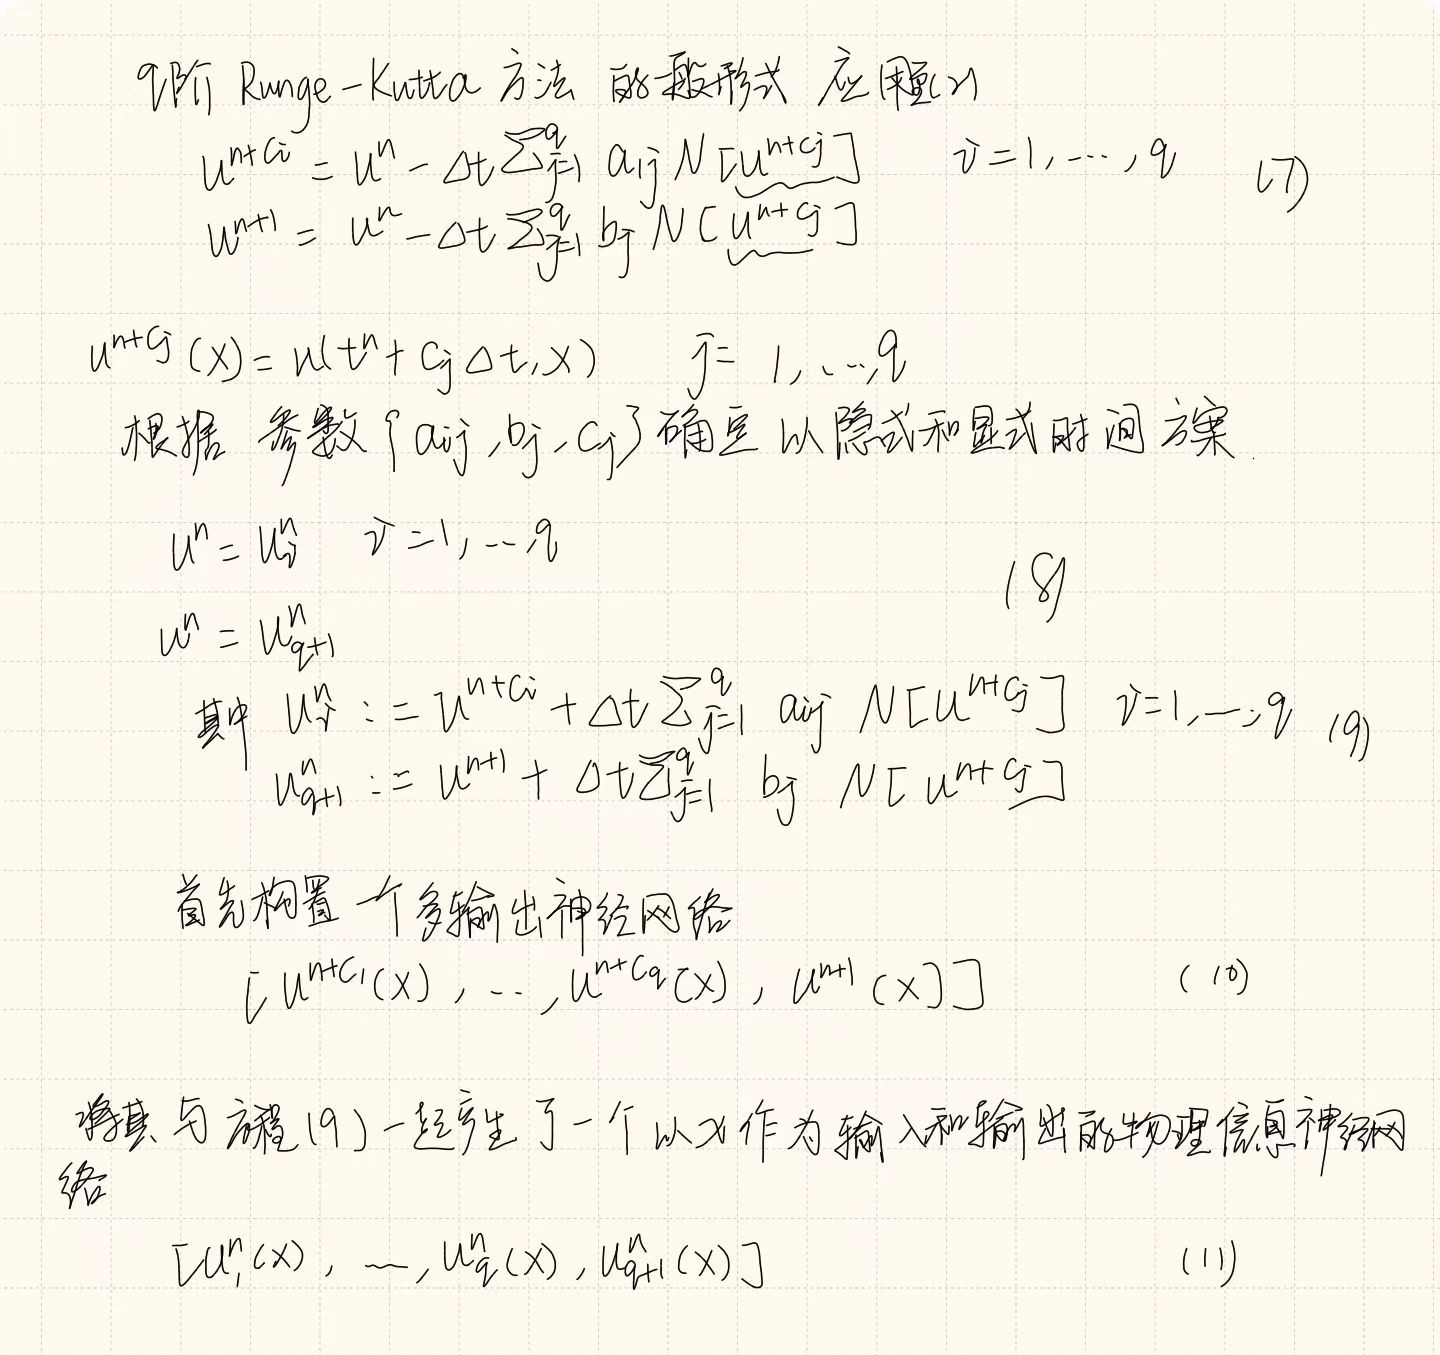 q阶 Runge-Kutta 方法 的一般形式 应用
u^{n+c_i} = u^n - Δt Σ_{j=1}^q a_{ij} N[u^{n+c_j}] i=1,...,q (7)
u^{n+1} = u^n - Δt Σ_{j=1}^q b_j N[u^{n+c_j}]
u^{n+c_j}(x) = u(t^n + c_jΔt, x) j= 1,...,q
根据 参数{a_{ij}, b_j, c_j}确定 以隐式和显式时间方案.
u^n = u_i^n i=1,...,q
(8)
u^n = u_{q+1}^n
其中 u_i^n := u^{n+c_i} + Δt Σ_{j=1}^q a_{ij} N[u^{n+c_j}] i=1,...,q (9)
u_{q+1}^n := u^{n+1} + Δt Σ_{j=1}^q b_j N[u^{n+c_j}]
首先构置一个多输出神经网络
[u^{n+c_1}(x), ..., u^{n+c_q}(x), u^{n+1}(x)] (10)
将其与方程(9)一起产生了一个以x作为输入和输出的物理信息神经网
络
[u_1^n(x), ..., u_q^n(x), u_{q+1}^n(x)] (11)